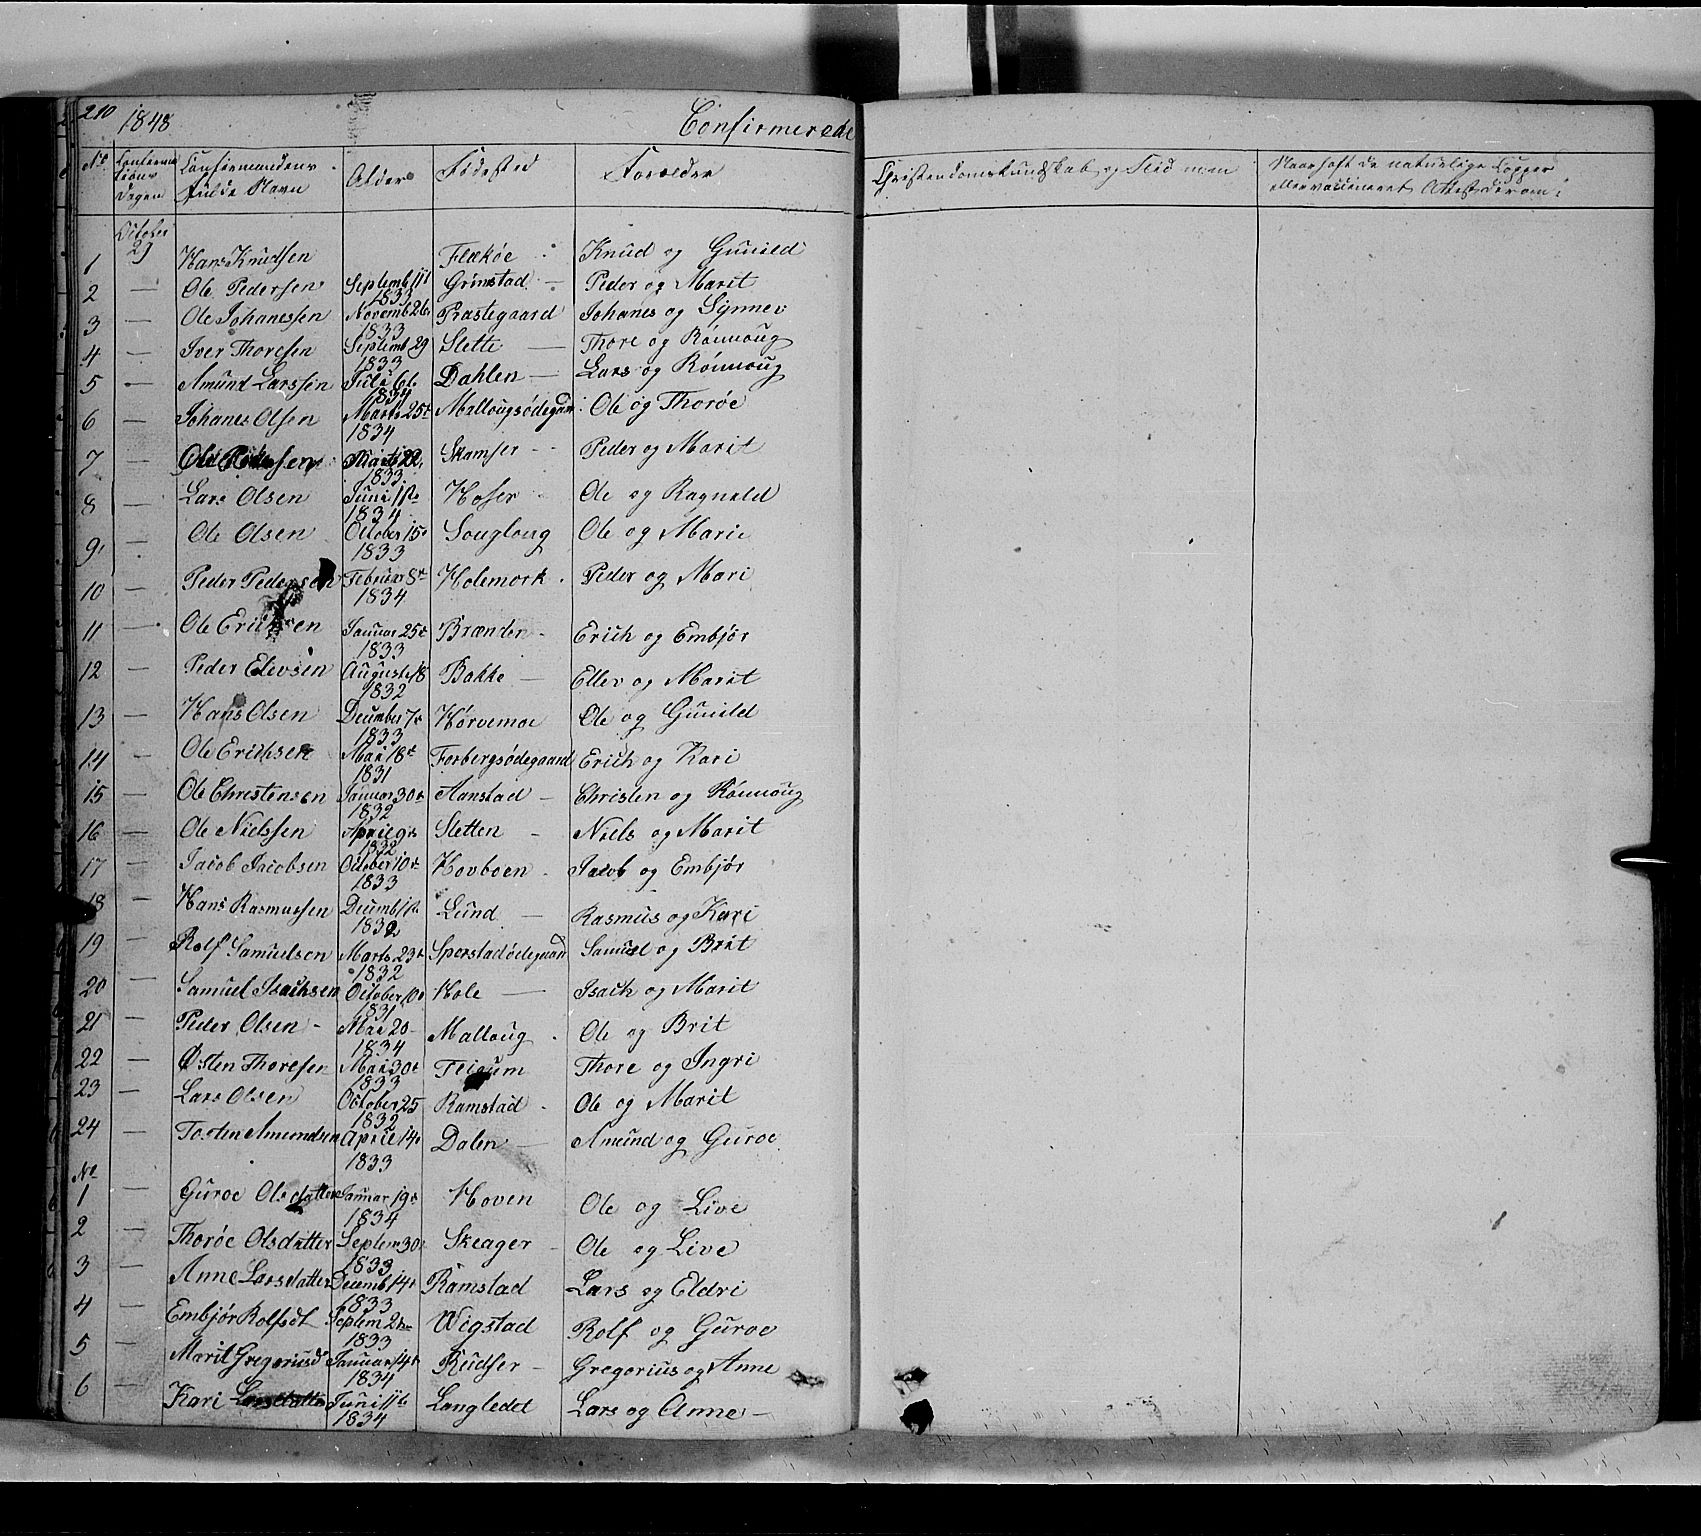 210 1848 Confirmerede
No Confirmations Dagen Confirmandens fulde Navn Alder Födested Forældre Christendomskundskab og Flid m m Naar haft de naturlige Kopper eller vaccineret Attest derom
October 29
1 Hans Knudsen Flækøe Knud og Gunild
2 — Ole Pedersen Septemb 11t 1833 Grönstad — Peder og Marit
3 — Ole Johanessen Novemb 26 1833 Prastegaard Johanes og Synnev
4 — Iver Thoresen Septemb 29 1833 Slette — Thore og Rönnoug
5 — Amund Larssen Juli 6t 1834 Dahlen — Lars og Rönnoug
6 — Johanes Olsen Marts 25t 1834 Mallougsödegaard Ole og Thoröe
7 — Ole Marts 22 1833 Skamser Peder og Marit
8 — Lars Olsen Juni 1ste 1834 Hoser Ole og Ragnild
9 — Ole Olsen October 15 1833 Sougloug Ole og Marie
10 — Peder Pedersen Februar 8t 1834 Holemork Peder og Mari
11 — Ole Erichsen Januar 25t 1833 Brænden — Erich og Embjör
12 — Peder Elevsen Auguste 18 1832 Bakke — Ellev og Marit
13 — Hans Olsen December 7 1833 Hörvemoe Ole og Gunild
14 — Ole Erichsen Mai 18t 1831 Forbergsödegaard Erich og Kari
15 — Ole Christensen Januar 30t 1832 Aanstad — Christen og Rönnoug
16 — Ole Nielssen April 9 1832 Sletten — Niels og Marit
17 — Jacob Jacobsen October 10t 1833 Hovboen Jacob og Embjör
18 — Hans Rasmussen Decemb 1ste 1832 Lund — Rasmus og Kari
19 — Rolf Samuelsen Marts 23t 1832 Sperstadödegaard Samuel og Brit
20 — Samuel Isachsen October 10 1831 Hole — Isach og Marit
21 — Peder Olsen — Mai 20 1834 Malloug Ole og Brit
22 — Østen Thoresen Mai 30t 1833 Thore og Ingri
23 — Lars Olsen October 25 1832 Ramstad Ole og Marit
24 — Tosten Amundsen April 14 1833 Dalen — Amund og Guroe
No
1 — Guroe Olsdatter Januar 19 1834 Hoven Ole og Live
2 — Thoröe Olsdatter Septem 30t 1833 Skeager Ole og Live
3 — Anne Larsdatter Decemb 14 1833 Ramstad Lars og Eldri
4 — Embjör Rolfsdt Septem 1833 Wigstad Rolf og Guroe
5 — Marit Gregoriusd Januar 14t 1834 Rudser — Gregorius og Anne
6 — Kari Larsdatter Juni 11te 1834 Langledet Lars og Anne —